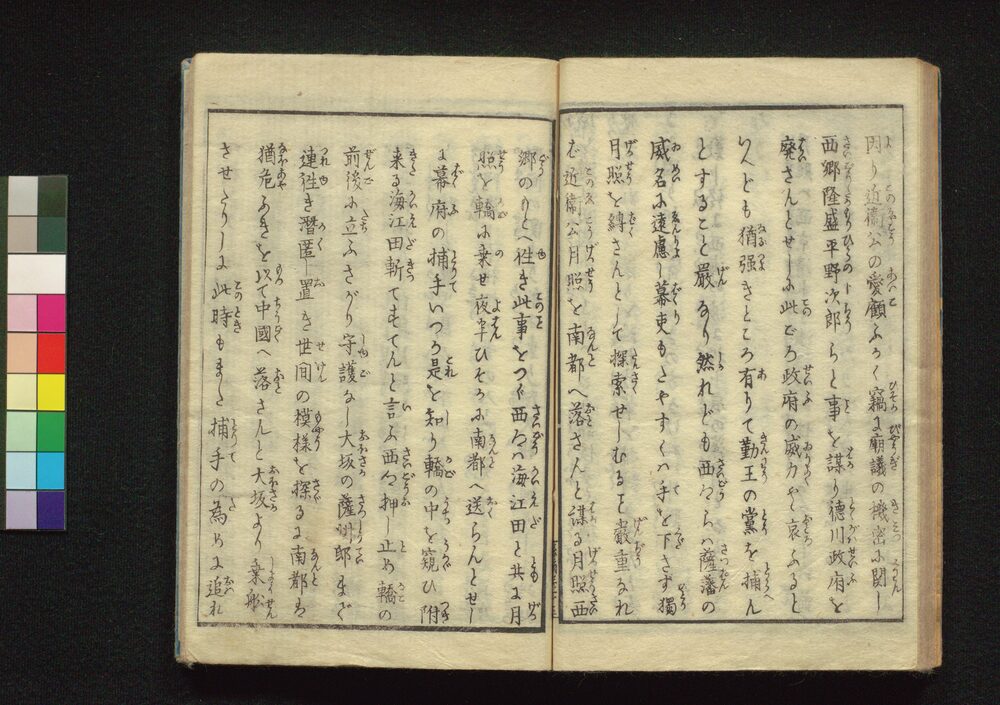 因り近衞公の愛顧ふかく竊に廟議の機密に関し
西郷隆盛平野次郎らと事を謀り徳川政府を
廃さんとせしに此ごろ政府の威力やゝ衰ふると
いへども猶強きところ有りて勤王の黨を捕ん
とすること嚴なり然れども西郷らハ薩藩の
威名に遠慮し幕吏もたやすくハ手を下さず獨
月照を縛さんとして探索せしむるを嚴重なれ
ば近衞公月照を南都へ落さんと謀る月照西
郷のもとへ往き此事をつぐ西郷ハ海江田と共に月
照を轎に乗せ夜半ひそかに南都へ送らんとせし
に幕府の捕手いつか是を知り轎の中を窺ひ附
来る海江田斬てすてんと言ふ西郷押し止め轎の
前後に立ふさがり守護なし大坂の薩州邸まで
連往き潜匿し置き世間の模様を探るに南都も
猶危ふきを以て中國へ落さんと大坂より乗船
させたりしに此時もまた捕手の為めに追れ